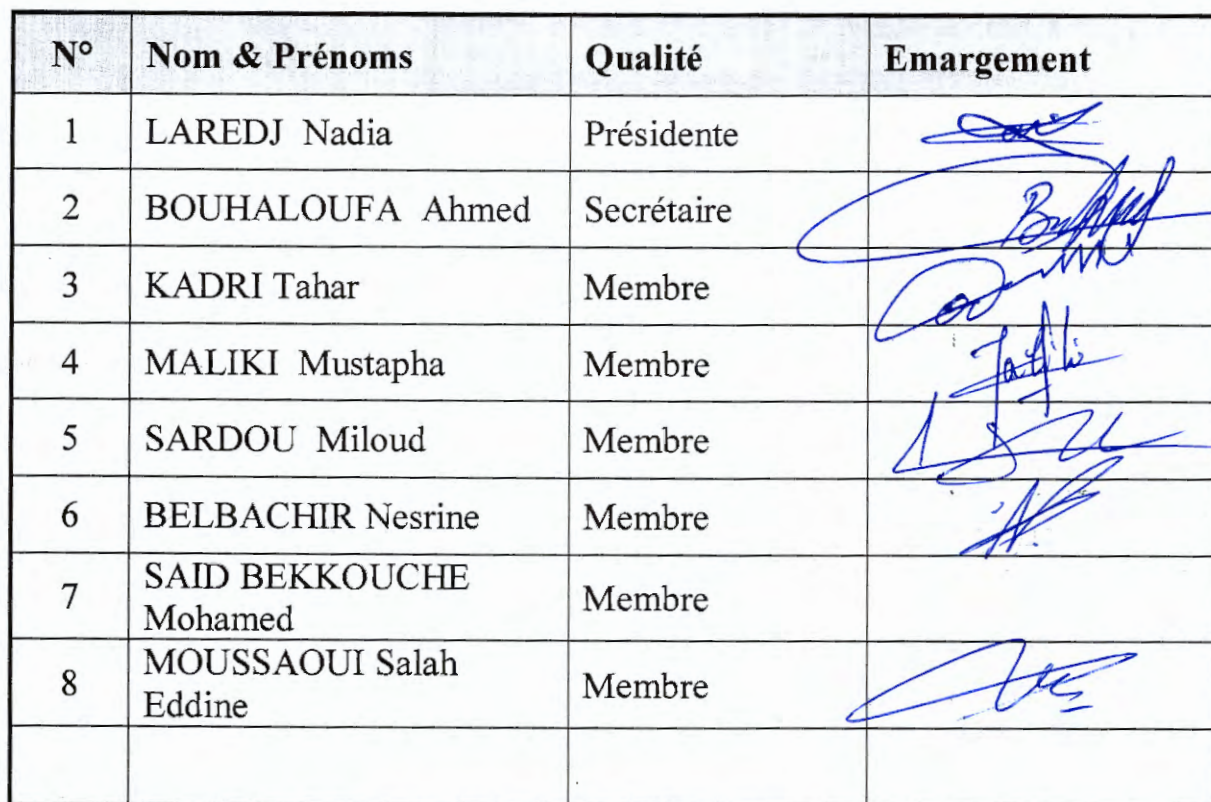 N° Nom & Prénoms Qualité Emargement
1 LAREDJ Nadia Présidente
2 BOUHALOUFA Ahmed Secrétaire
3 KADRI Tahar Membre
4 MALIKI Mustapha Membre
5 SARDOU Miloud Membre
6 BELBACHIR Nesrine Membre
7 SAID BEKKOUCHE
Mohamed Membre
8 MOUSSAOUI Salah
Eddine Membre